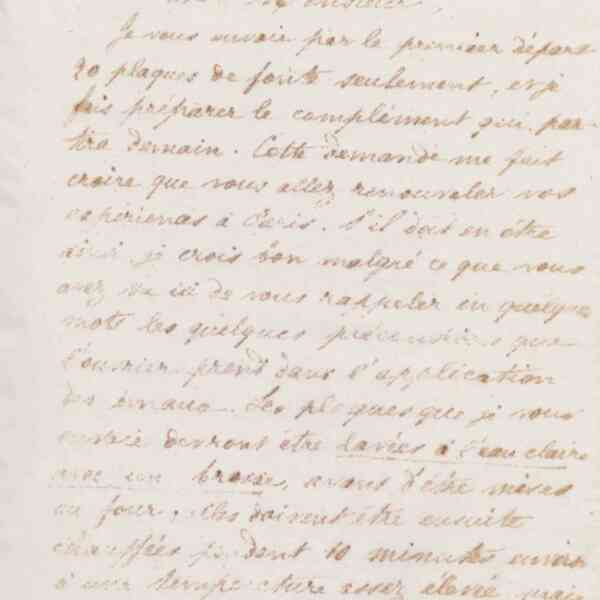 Je vous envoie par le premier départ
20 plaques de fonte seulement, et je
fais préparer le complément qui par-
tira demain. Cette demande me fait
croire que vous allez renouveler vos
expériences à Paris. S'il doit en être
ainsi, je crois bon malgré ce que vous
avez vu ici de vous rappeler en quelques
mots les quelques précautions que
l'ouvrier prend dans l'application
des émaux. Les plaques que je vous
envoie devront être lavées à l'eau claire
avec une brosse, avant d'être mises
au four, elles doivent être ensuite
chauffées pendant 10 minutes environ
à une température assez élevée mais